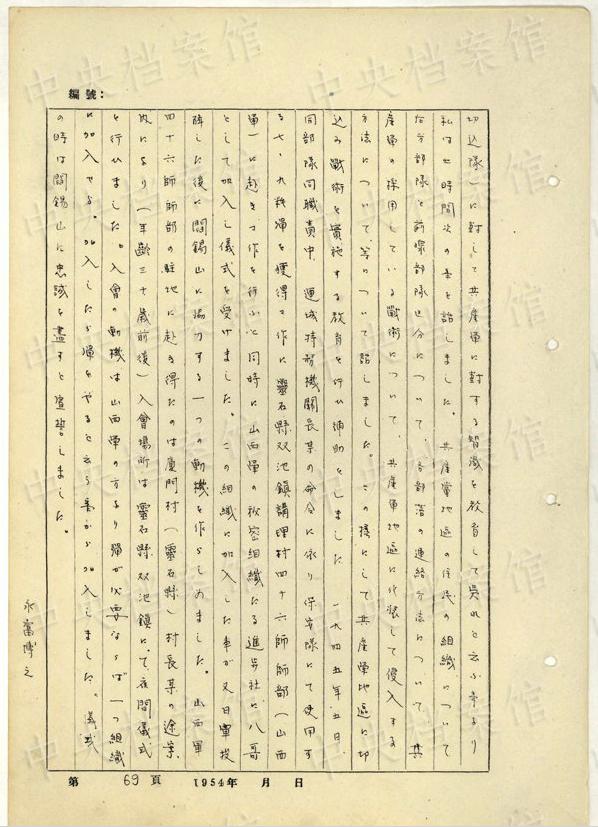 編號：
切込隊一に対して共産軍に対する智識を教育して呉れと云ふ事より
私は七時間次の事を話しました。共産党地區の住民の組織について
方法について、等について話しました。この様にして共産軍地區に切
込み戦術を實施する教育を行ひ補助をしました 一九四五年五月、
同部隊同職責中、運城特務機關長某の命令に依り保安隊にて使用す
として加入し儀式を受けました。この組織に加入した事が又日軍投
降した後に閻錫山に協力する一つの動機を作らしめました。山西軍
四十六師師部の駐地に赴き得たのは廈門村（靈石縣）村長某の
（年齢三十歳前後）入會場所は靈石縣双池鎮にて、夜間儀式
を行ひました。入會の動機は山西軍の方より弾が必要ならば一つ組織
に加入せよ。加入したら弾をやると云ふ事から加入しました。儀式
の時は閻錫山に忠誠を盡すと宣誓しました。
永富博之
第 69 頁 1954年 月 日
中央档案馆